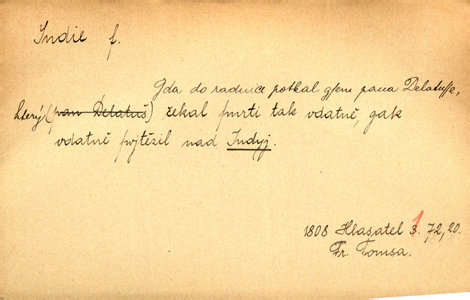 Indie f.
Gda do radnice potkal gsem pana Delatusse,
který (pan Delatuš) čekal smrti tak vdatně, gak
vdatně swjtězil nad Indyj.
1808 Hlasatel 3. 1 72, 20.
Fr. Tomsa.